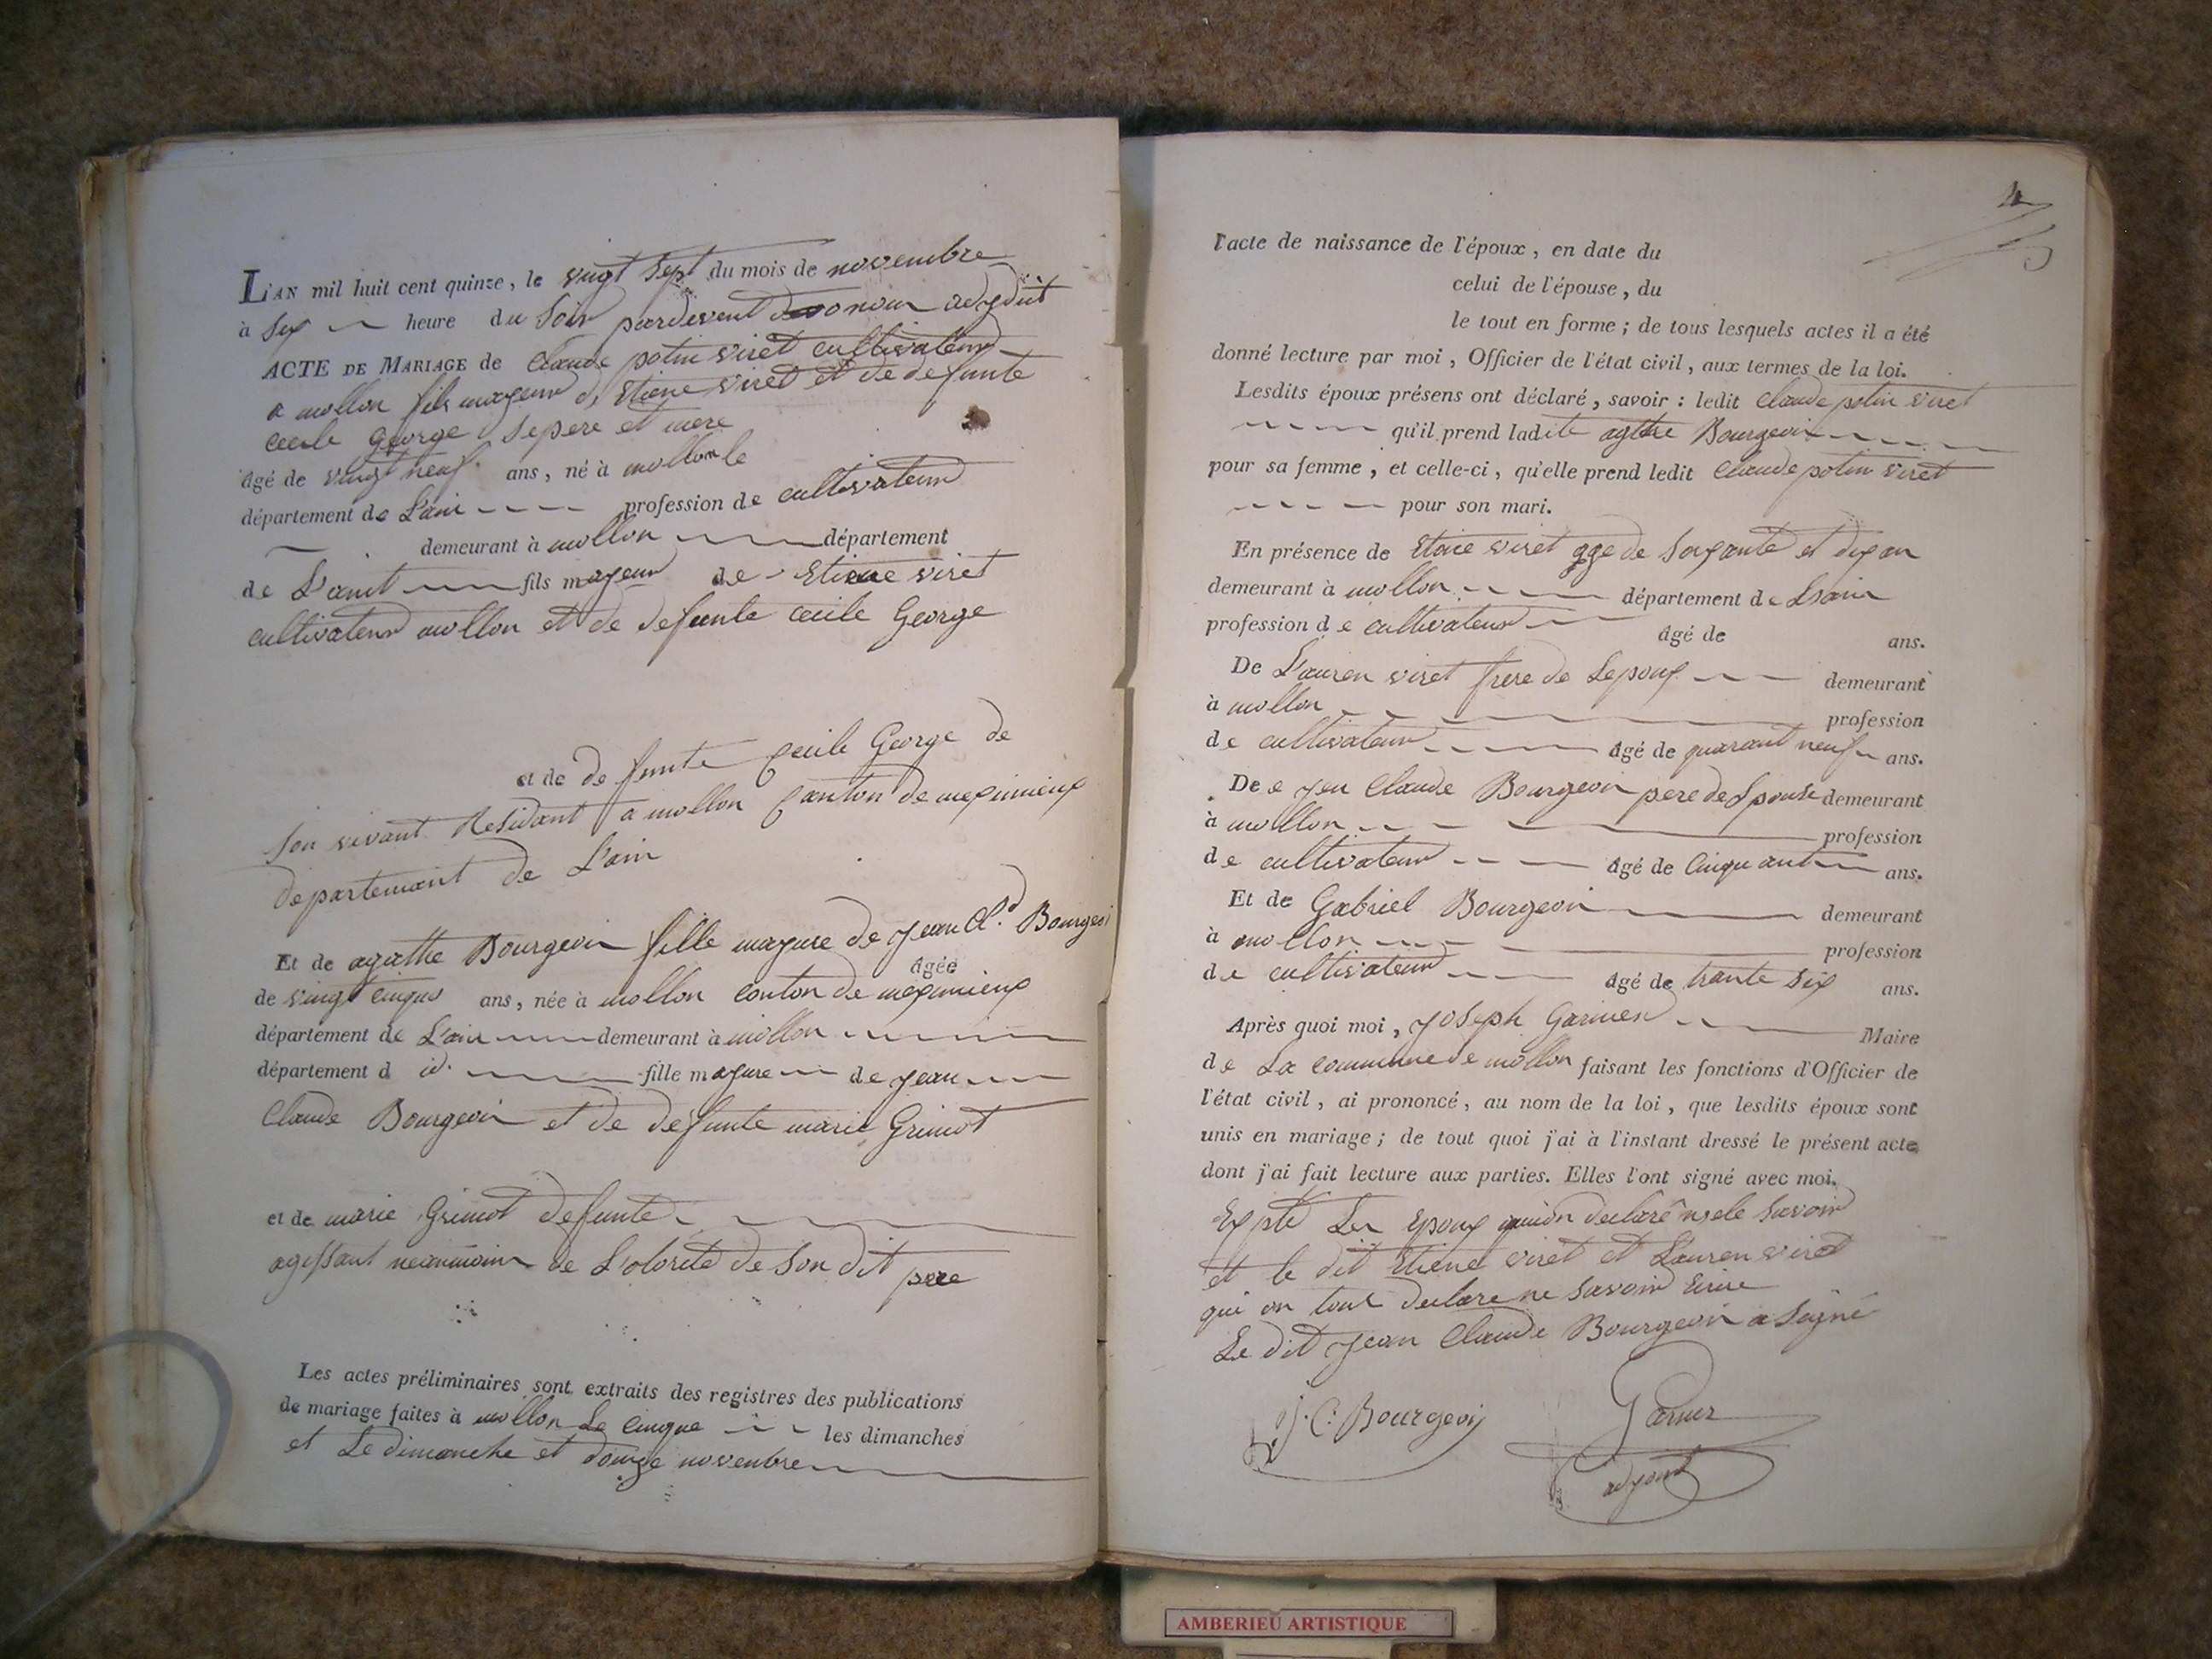 L'AN mil huit cent quinze, le vingt sept du mois de novembre
à six heure du soir pardevent nous adjoüt
ACTE DE MARIAGE de Claude potin viret cultivateur
a mollon fils majeur d Etiene viret et de defunte
cecile George se pere et mere
âgé de vingt neuf ans, né à mollon le
département de L'ain profession de cultivateur
demeurant à mollon département
de L'aint fils majeur de Etiene viret
cultivateur mollon et de defunte cecile George
et de defunte Cecile George de
son vivant Residant a mollon Canton de meximieux
departemant de L'ain
Et de agathe Bourgeoin fille majure de jean Cl.d Bourgeoi
âgée
de vingt cinque ans, née à mollon conton de meximieux
département de L'ain demeurant à mollon
département d id. fille majure de jean
Claude Bourgeoin et de defunte marie Grimot
et de marie Grimot defunte
agissant neanmoin de L'otorité de son dit pere
Les actes préliminaires sont extraits des registres des publications
de mariage faites à mollon Le cinque les dimanches
et Le dimanche et douze novembre
4
l'acte de naissance de l'époux, en date du
celui de l'épouse, du
le tout en forme; de tous lesquels actes il a été
donné lecture par moi, Officier de l'état civil, aux termes de la loi.
Lesdits époux présens ont déclaré, savoir: ledit Claude potin viret
qu'il prend ladite agthe Bourgeoin
pour sa femme, et celle-ci, qu'elle prend ledit Claude potin viret
pour son mari.
En présence de Etiene viret age de soixante et dix an
demeurant à mollon département de L'ain
profession de cultivateur âgé de ans.
De L'auren viret frere de Lepoux demeurant
à mollon profession
de cultivateur âgé de quarant neuf ans.
De e jen Claude Bourgeoin pere de Epouse demeurant
à mollon profession
de cultivateur âgé de Cinquant ans.
Et de Gabriel Bourgeoin demeurant
à mollon profession
de cultivateur âgé de trante six ans.
Après quoi moi, joseph Garnier Maire
de La commune de mollon faisant les fonctions d'Officier de
l'état civil, ai prononcé, au nom de la loi, que lesdits époux sont
unis en mariage; de tout quoi j'ai à l'instant dressé le présent acte
dont j'ai fait lecture aux parties. Elles l'ont signé avec moi.
Expté Les Epoux declaré savoir
et le dit Etiene viret et L'auren viret
qui on tout declare ne savoir Ecrire
Le dit jean Claude Bourgeoin a signé
j. C. Bourgeois Garnier
adjoint
AMBERIEU ARTISTIQUE